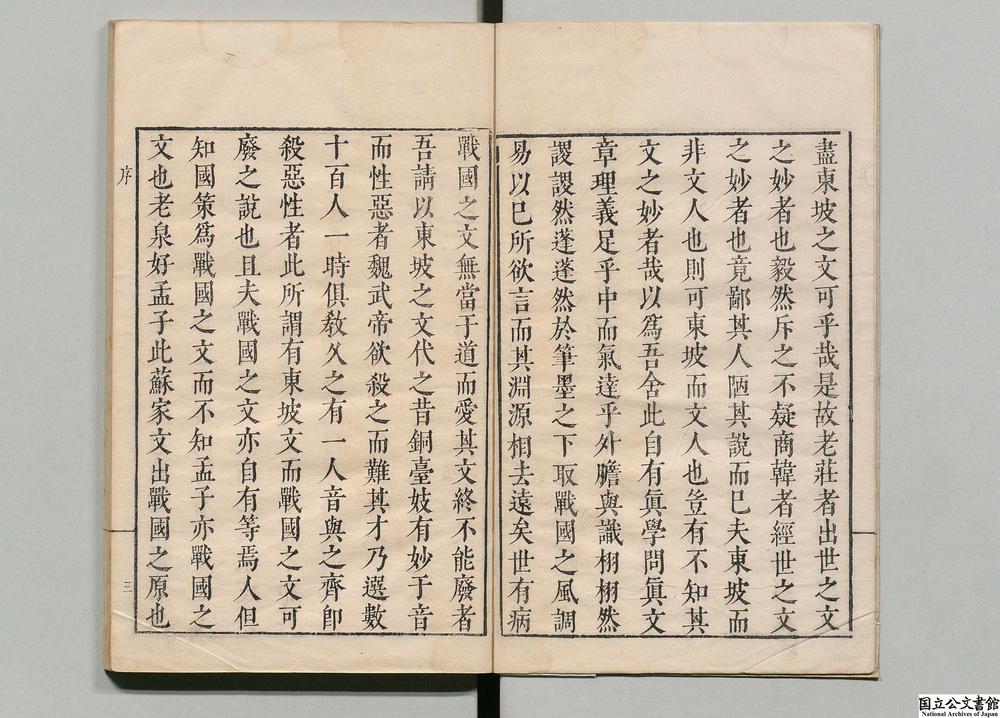 盡東坡之文可乎哉是故老莊者出世之文
之妙者也毅然斥之不疑商韓者經世之文
之妙者也竟鄙其人陋其說而已夫東坡而
非文人也則可東坡而文人也豈有不知其
文之妙者哉以爲吾舍此自有眞學問眞文
章理義足乎中而氣達乎外膽與識栩栩然
謖謖然蓬蓬然於筆墨之下取戰國之風調
易以已所欲言而其淵源相去遠矣世有病
戰國之文無當于道而愛其文終不能廢者
吾請以東坡之文代之昔銅臺妓有妙于音
而性惡者魏武帝欲殺之而難其才乃選數
十百人一時俱敎久之有一人音與之齊卽
殺惡性者此所謂有東坡文而戰國之文可
廢之說也且夫戰國之文亦自有等焉人但
知國策爲戰國之文而不知孟子亦戰國之
文也老泉好孟子此蘇家文出戰國之原也
序
三
国立公文書館
National Archives of Japan